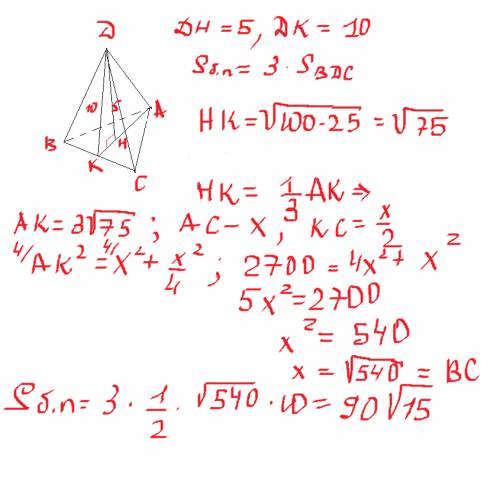 D
10
5
A
B
H
K
C
DH = 5, DK = 10
Sб.п = 3 · S BDC
HK = √100-25 = √75
HK = 1/3 AK ⇒
AK = 3√75 ; AC - x, KC = x/2
4/ AK² = 4/ x² + x²/4 ; 2700 = 4x² + x²
5x² = 2700
x² = 540
x = √540 = BC
Sб.п = 3 · 1/2 · √540 · 10 = 90√15